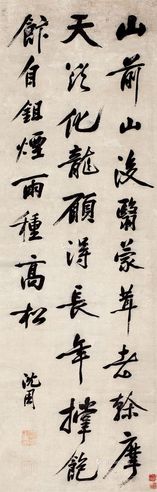 山前山後翳蒙茸老幹摩
天欲化龍願得長年撐飽
飰自鉏煙雨種高松
沈周